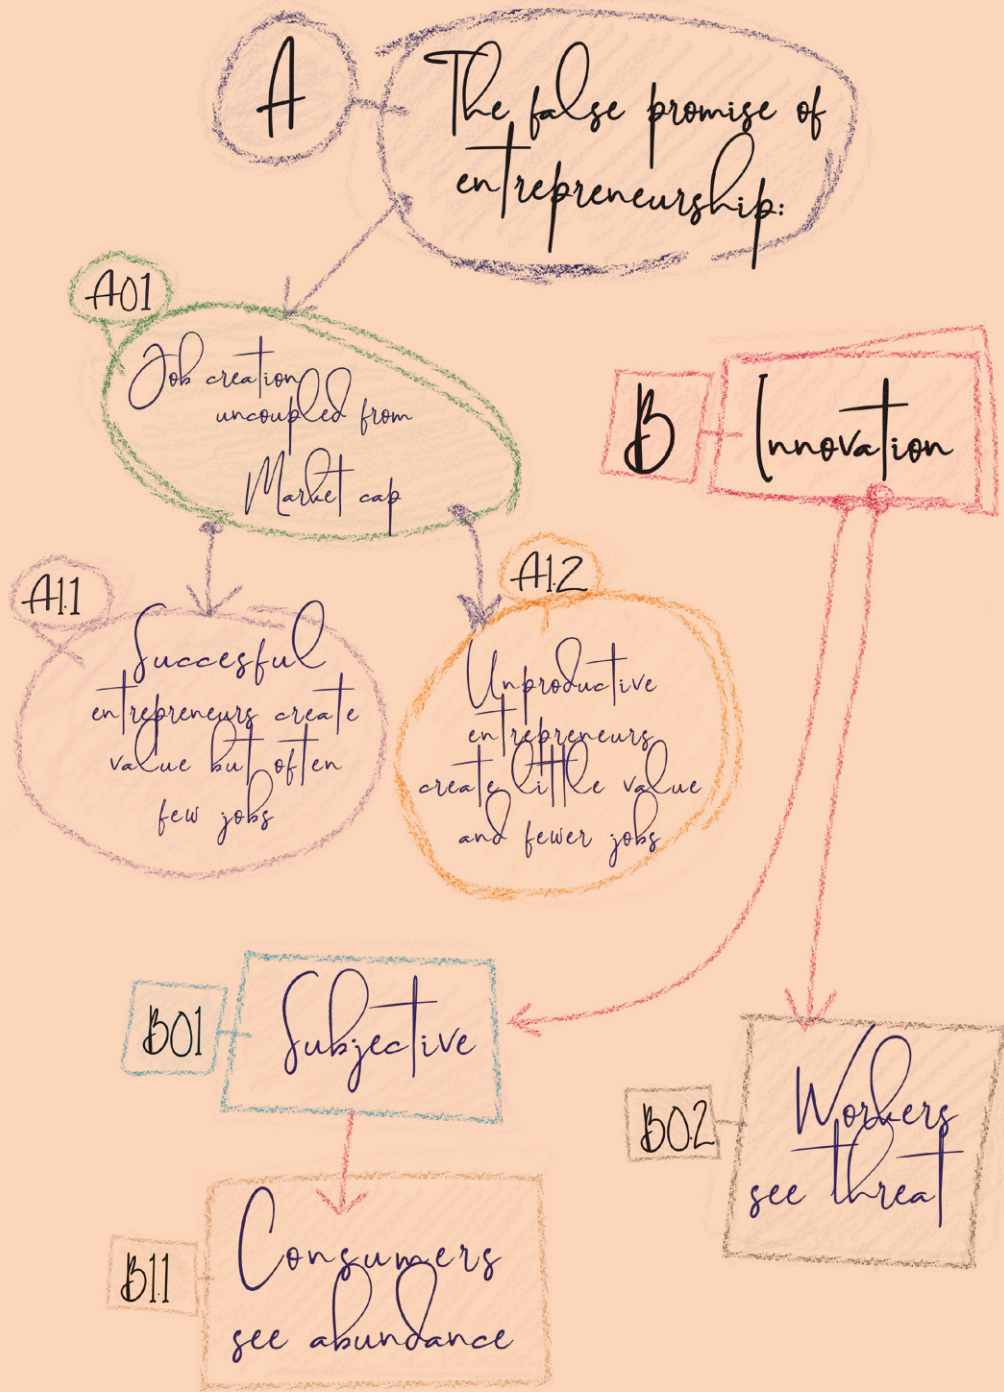 A
The false promise of
entrepreneurship:
A01
Job creation
uncoupled from
Market cap
B
Innovation
A1.1
Succesful
entrepreneurs create
value but often
few jobs
A1.2
Unproductive
entrepreneurs
create little value
and fewer jobs
B01
Subjective
B0.2
Workers
see threat
B1.1
Consumers
see abundance